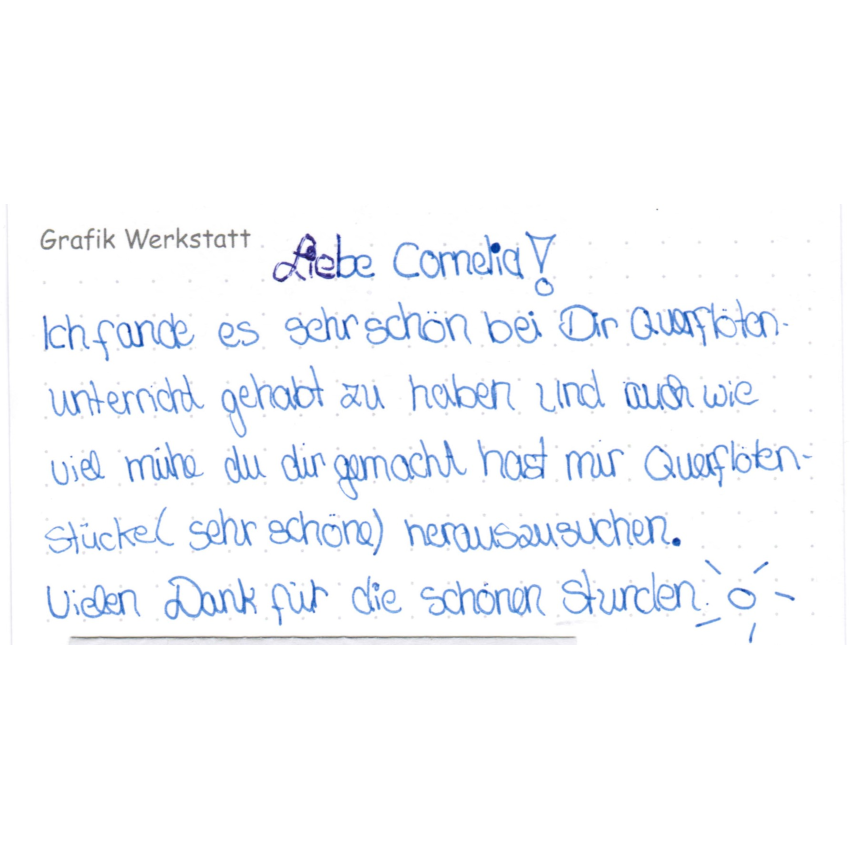 Grafik Werkstatt
Liebe Cornelia!
Ich fande es sehr schön bei Dir Querflöten-
unterricht gehabt zu haben und auch wie
viel mühe du dir gemacht hast mir Querflöten-
stücke( sehr schöne) herauszusuchen.
Vielen Dank für die schönen Stunden.